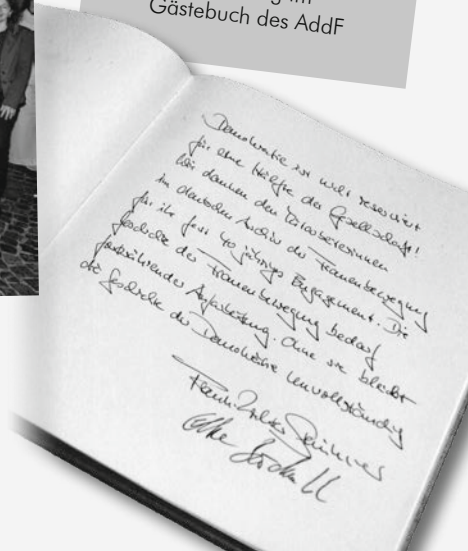 Gästebuch des AddF
Demokratie ist nicht reserviert
für eine Hälfte der Gesellschaft!
Wir danken den Mitarbeiterinnen
im deutschen Archiv der Frauenbewegung
für ihr fast 40 jähriges Engagement. Die
Geschichte der Frauenbewegung bedarf
fortwährender Aufarbeitung. Ohne sie bleibt
die Geschichte der Demokratie unvollständig
Frank-Walter Steinmeier
Elke Büdenbender